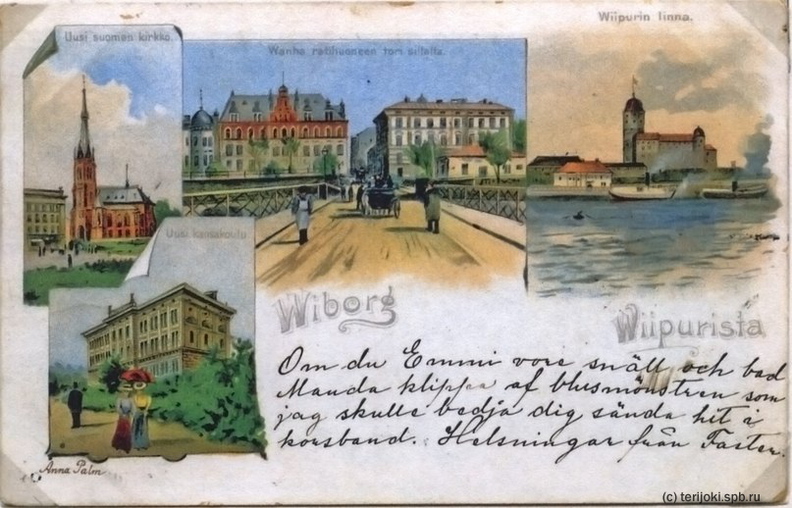 Wiipurin linna.
Uusi suomen kirkko.
Wanha raatihuoneen tori sillalta.
Uusi kansakoulu
Wiborg
Wiipurista
Om du Emmi vore snäll och bad
Manda klippa af blusmönstren som
jag skulle bedja dig sända hit i
korsband. Helsningar från Faster.
Anna Palm
(c) terijoki.spb.ru